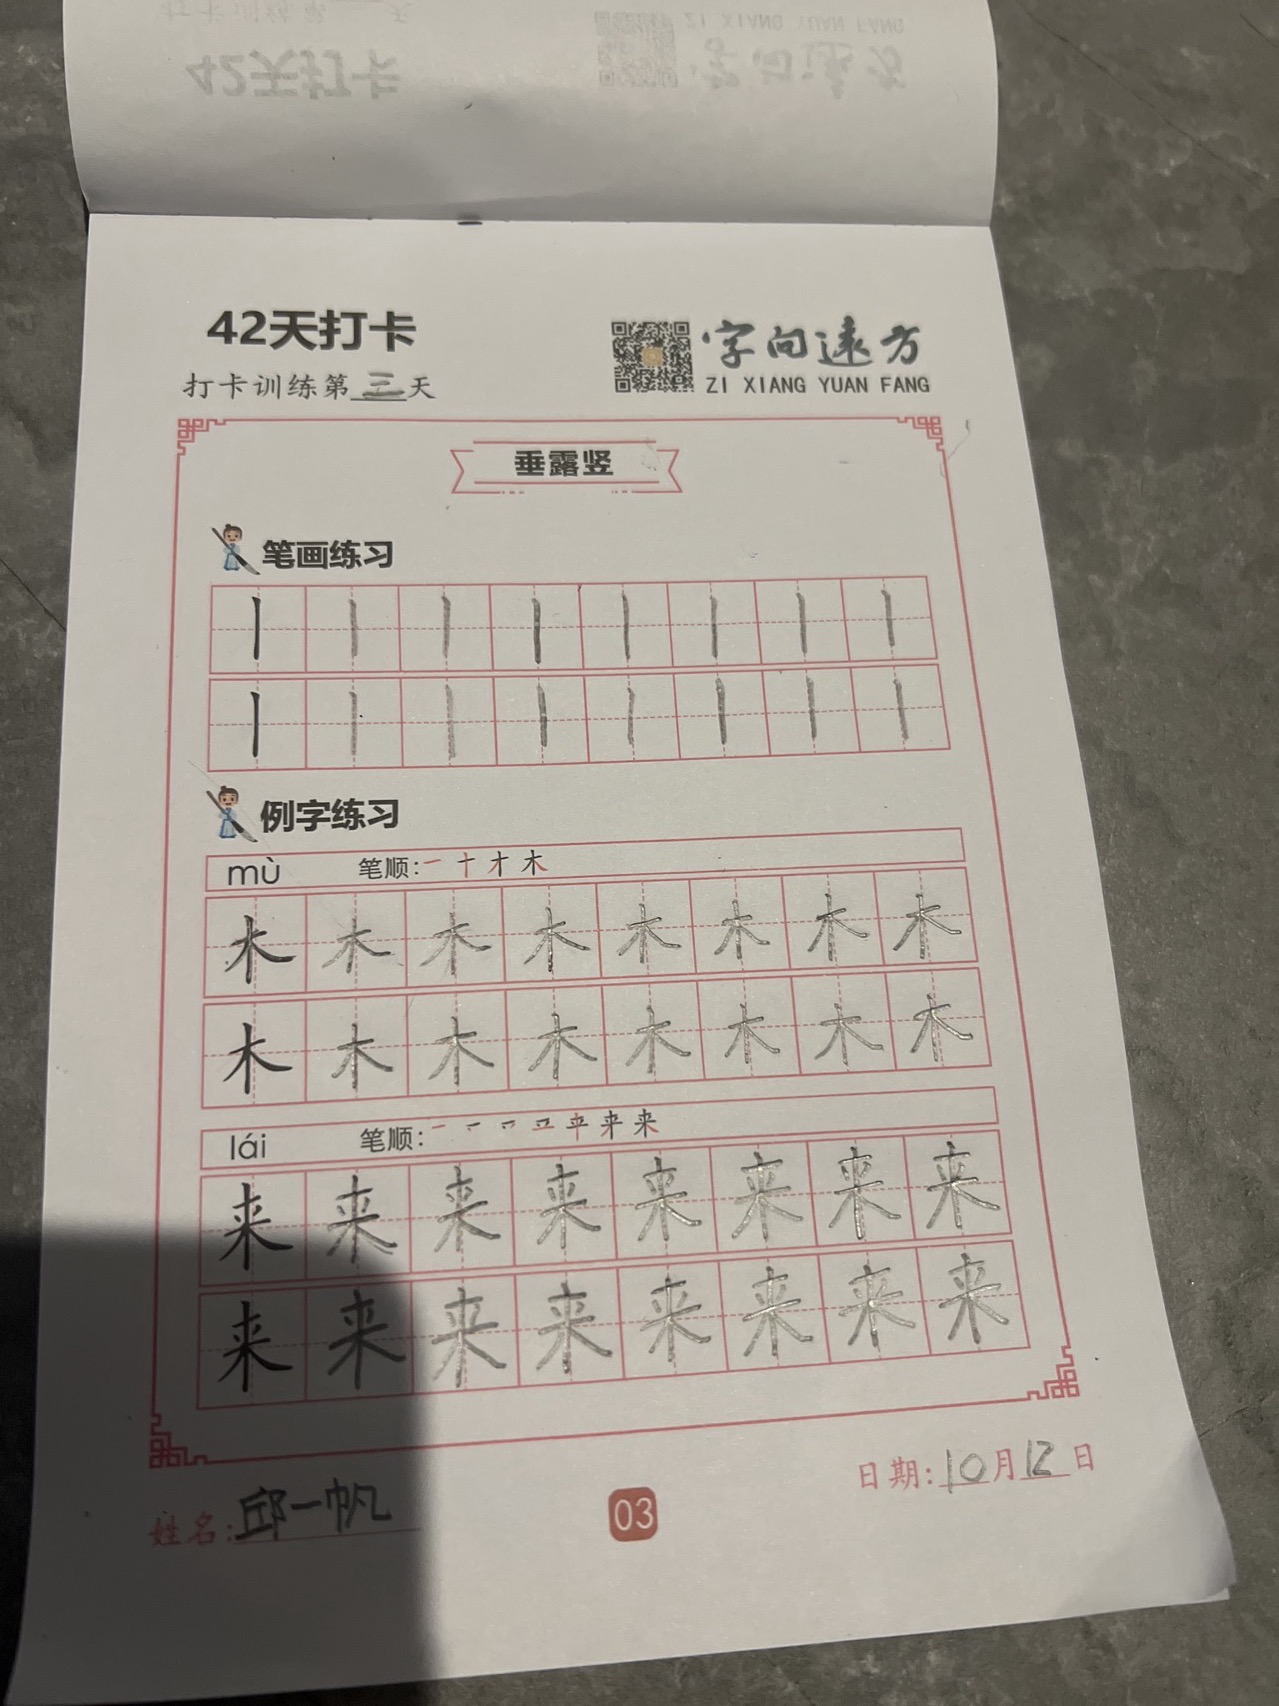 42天打卡
打卡训练第三天
字向遠方
ZI XIANG YUAN FANG
垂露竖
笔画练习
丨丨丨丨丨丨丨丨
丨丨丨丨丨丨丨丨
例字练习
mù 笔顺:一十才木
木木木木木木木木
木木木木木木木木
lái 笔顺:
来来来来来来来来
来来来来来来来来
姓名:邱一帆
03
日期:10月12日